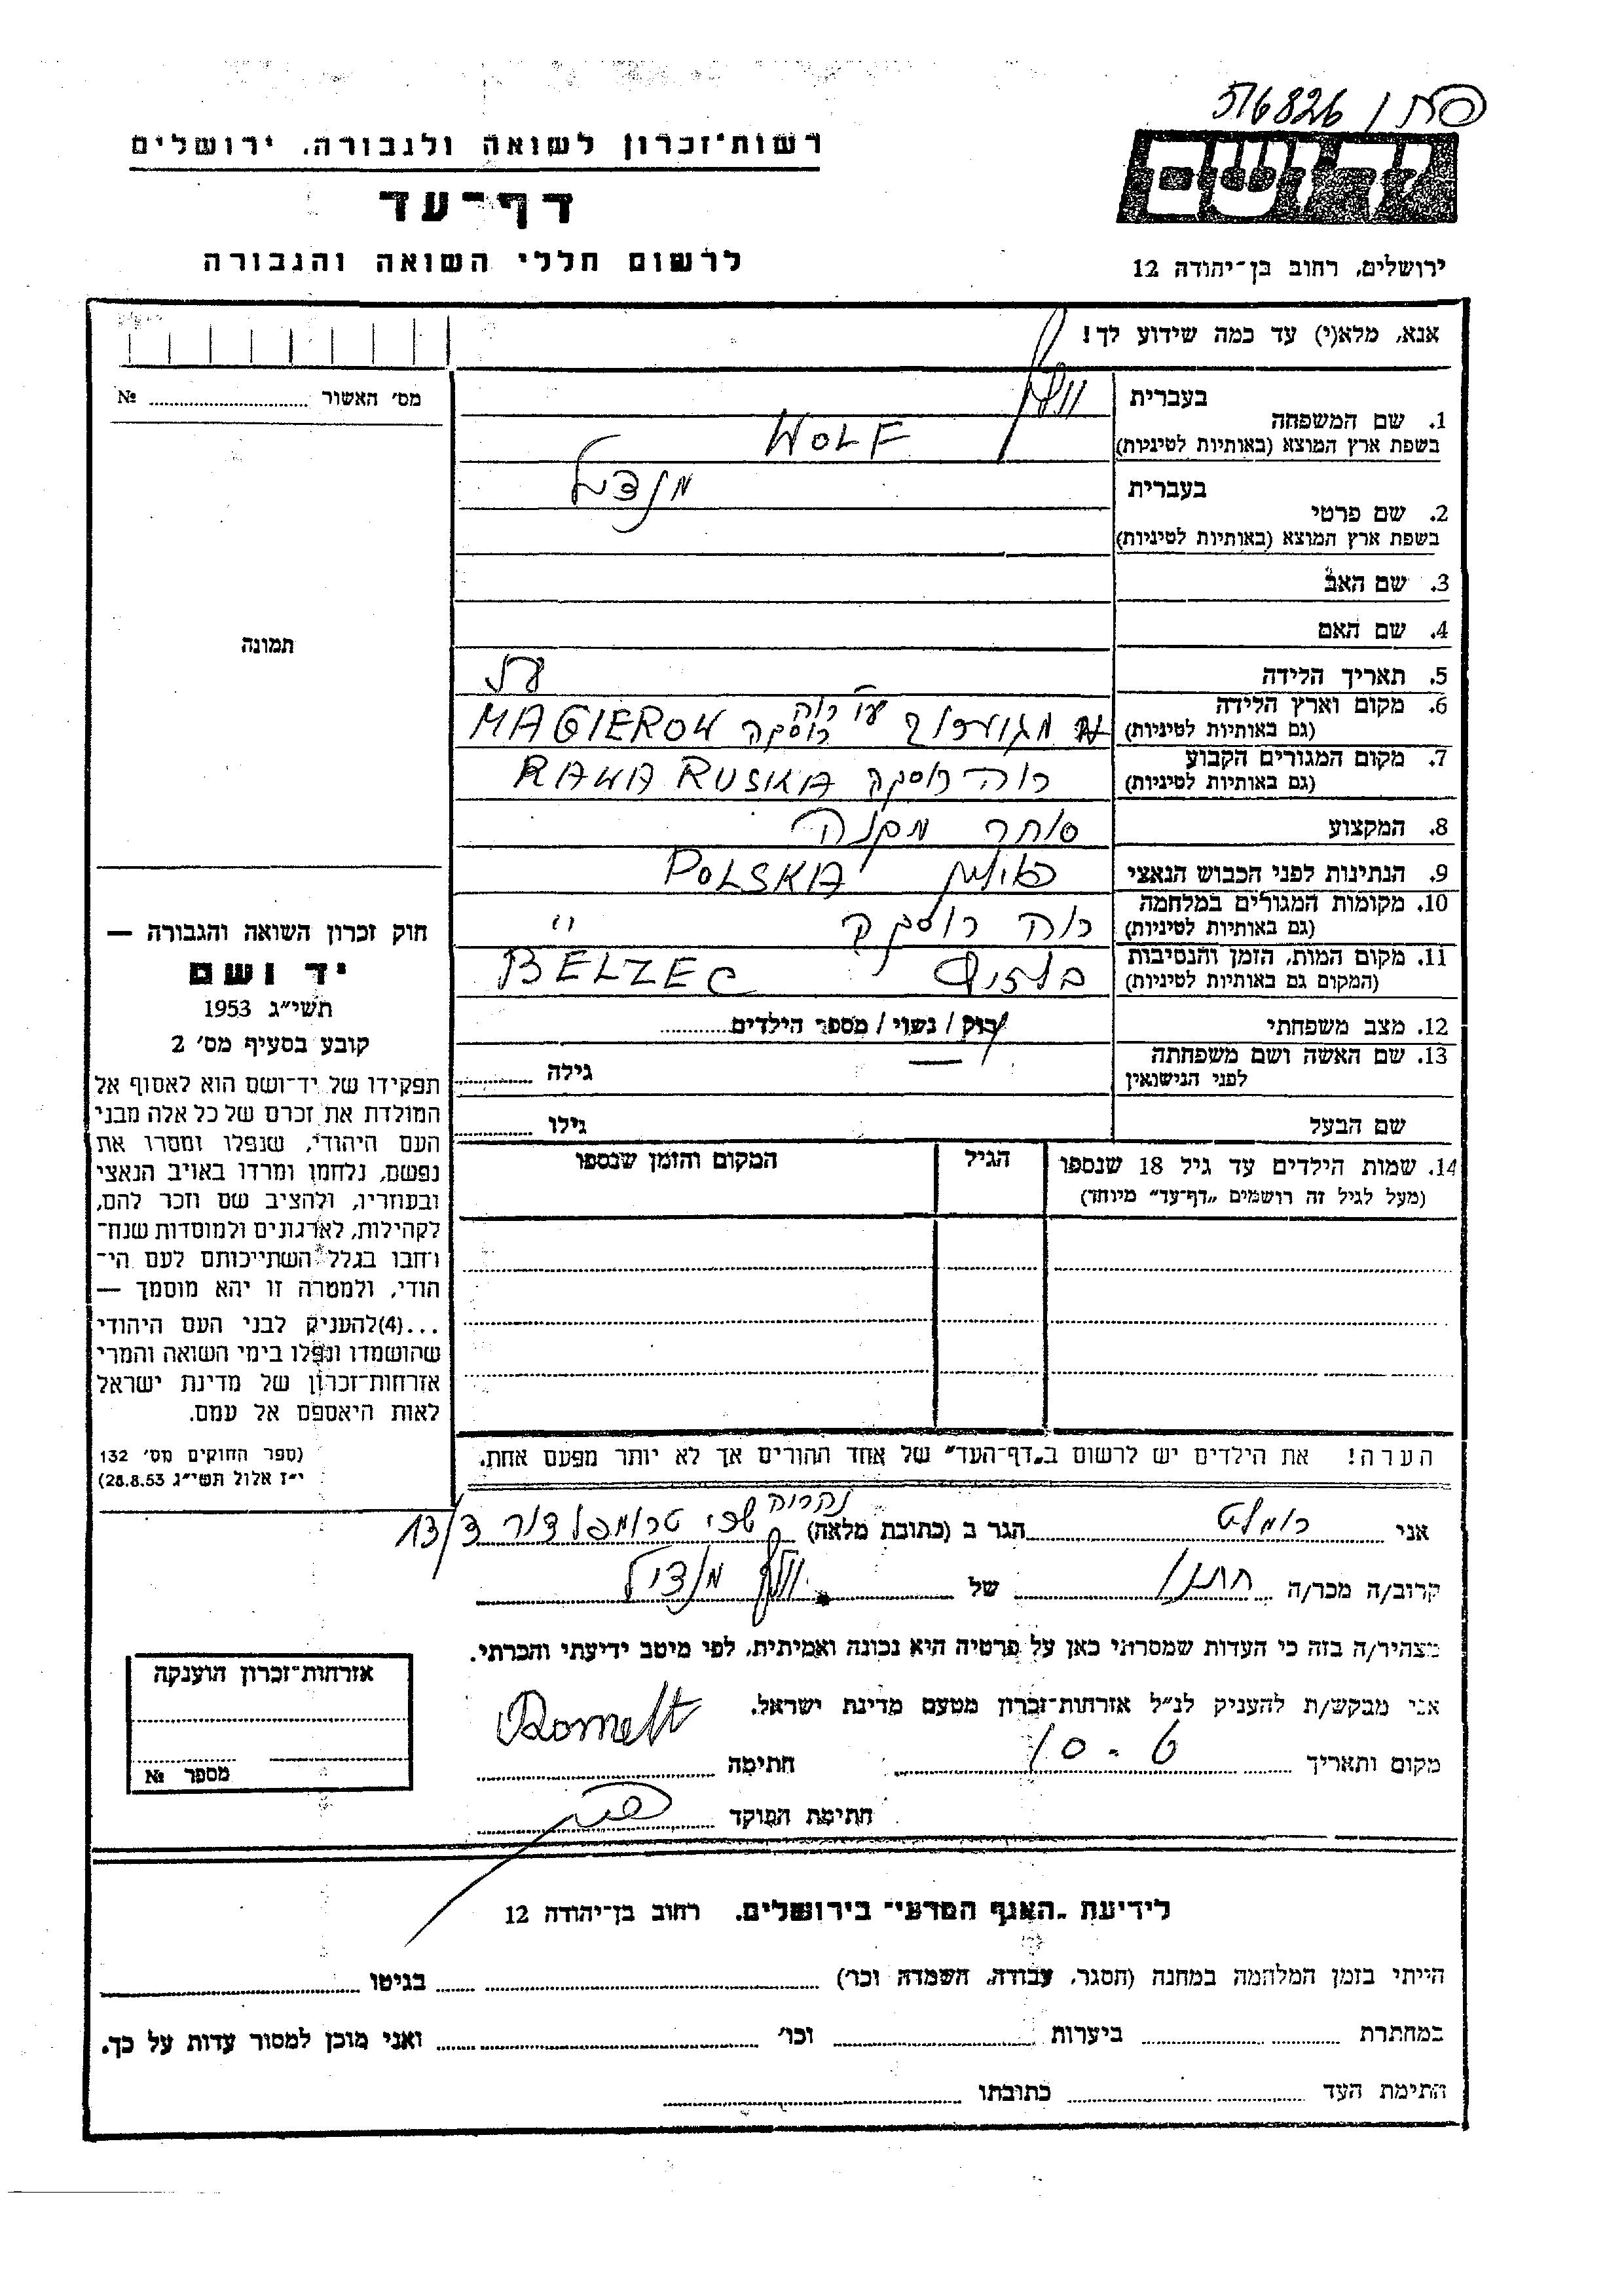 516826
רשות־זכרון לשואה ולגבורה, ירושלים
יד ושם
דף־עד
לרשום חללי השואה והגבורה
ירושלים, רחוב בן־יהודה 12
אנא, מלא(י) עד כמה שידוע לך!
מס׳ האשור № 
1. שם המשפחה
בעברית וולף
בשפת ארץ המוצא (באותיות לטיניות) WOLF
2. שם פרטי
בעברית מנדל
בשפת ארץ המוצא (באותיות לטיניות)
3. שם האב
4. שם האם
5. תאריך הלידה
6. מקום וארץ הלידה
(גם באותיות לטיניות) רוה רוסקה MAGIEROW
7. מקום המגורים הקבוע
(גם באותיות לטיניות) רוה רוסקה RAWA RUSKA
8. המקצוע סוחר מקנה
9. הנתינות לפני הכבוש הנאצי פולין POLSKA
10. מקומות המגורים במלחמה
(גם באותיות לטיניות) רוה רוסקה "
11. מקום המות, הזמן והנסיבות
(המקום גם באותיות לטיניות) BELZEC
12. מצב משפחתי רוק / נשוי / מספר הילדים
13. שם האשה ושם משפחתה
לפני הנישואין — גילה
שם הבעל גילו
14. שמות הילדים עד גיל 18 שנספו
(מעל לגיל זה רושמים „דף־עד" מיוחד)
הגיל
המקום והזמן שנספו
תמונה
חוק זכרון השואה והגבורה —
יד ושם
תשי"ג 1953
קובע בסעיף מס׳ 2
תפקידו של יד־ושם הוא לאסוף אל
המולדת את זכרם של כל אלה מבני
העם היהודי, שנפלו ומסרו את
נפשם, נלחמו ומרדו באויב הנאצי
ובעוזריו, ולהציב שם וזכר להם,
לקהילות, לארגונים ולמוסדות שנח־
רחבו בגלל השתייכותם לעם הי־
הודי, ולמטרה זו יהא מוסמך —
...(4)להעניק לבני העם היהודי
שהושמדו ונפלו בימי השואה והמרי
אזרחות־זכרון של מדינת ישראל
לאות היאספם אל עמם.
(ספר החוקים מס׳ 132
י"ז אלול תשי"ג 28.8.53)
הערה! את הילדים יש לרשום ב„דף־העד" של אחד ההורים אך לא יותר מפעם אחת.
אני רומלט הגר ב (כתובת מלאה) נהריה טרומפלדור 13/3
קרוב/ה מכר/ה חתנו של וולף מנדיל
מצהיר/ה בזה כי העדות שמסרתי כאן על פרטיה היא נכונה ואמיתית, לפי מיטב ידיעתי והכרתי.
אני מבקש/ת להעניק לנ"ל אזרחות־זכרון מטעם מדינת ישראל.
מקום ותאריך חתימה Romelt
חתימת הפוקד
אזרחות־זכרון הוענקה
מספר №
לידיעת „האגף המדעי" בירושלים, רחוב בן־יהודה 12
הייתי בזמן המלחמה במחנה (הסגר, עבודה, השמדה וכו׳) בגיטו
במחתרת ביערות וכו׳ ואני מוכן למסור עדות על כך.
חתימת העד כתובתו